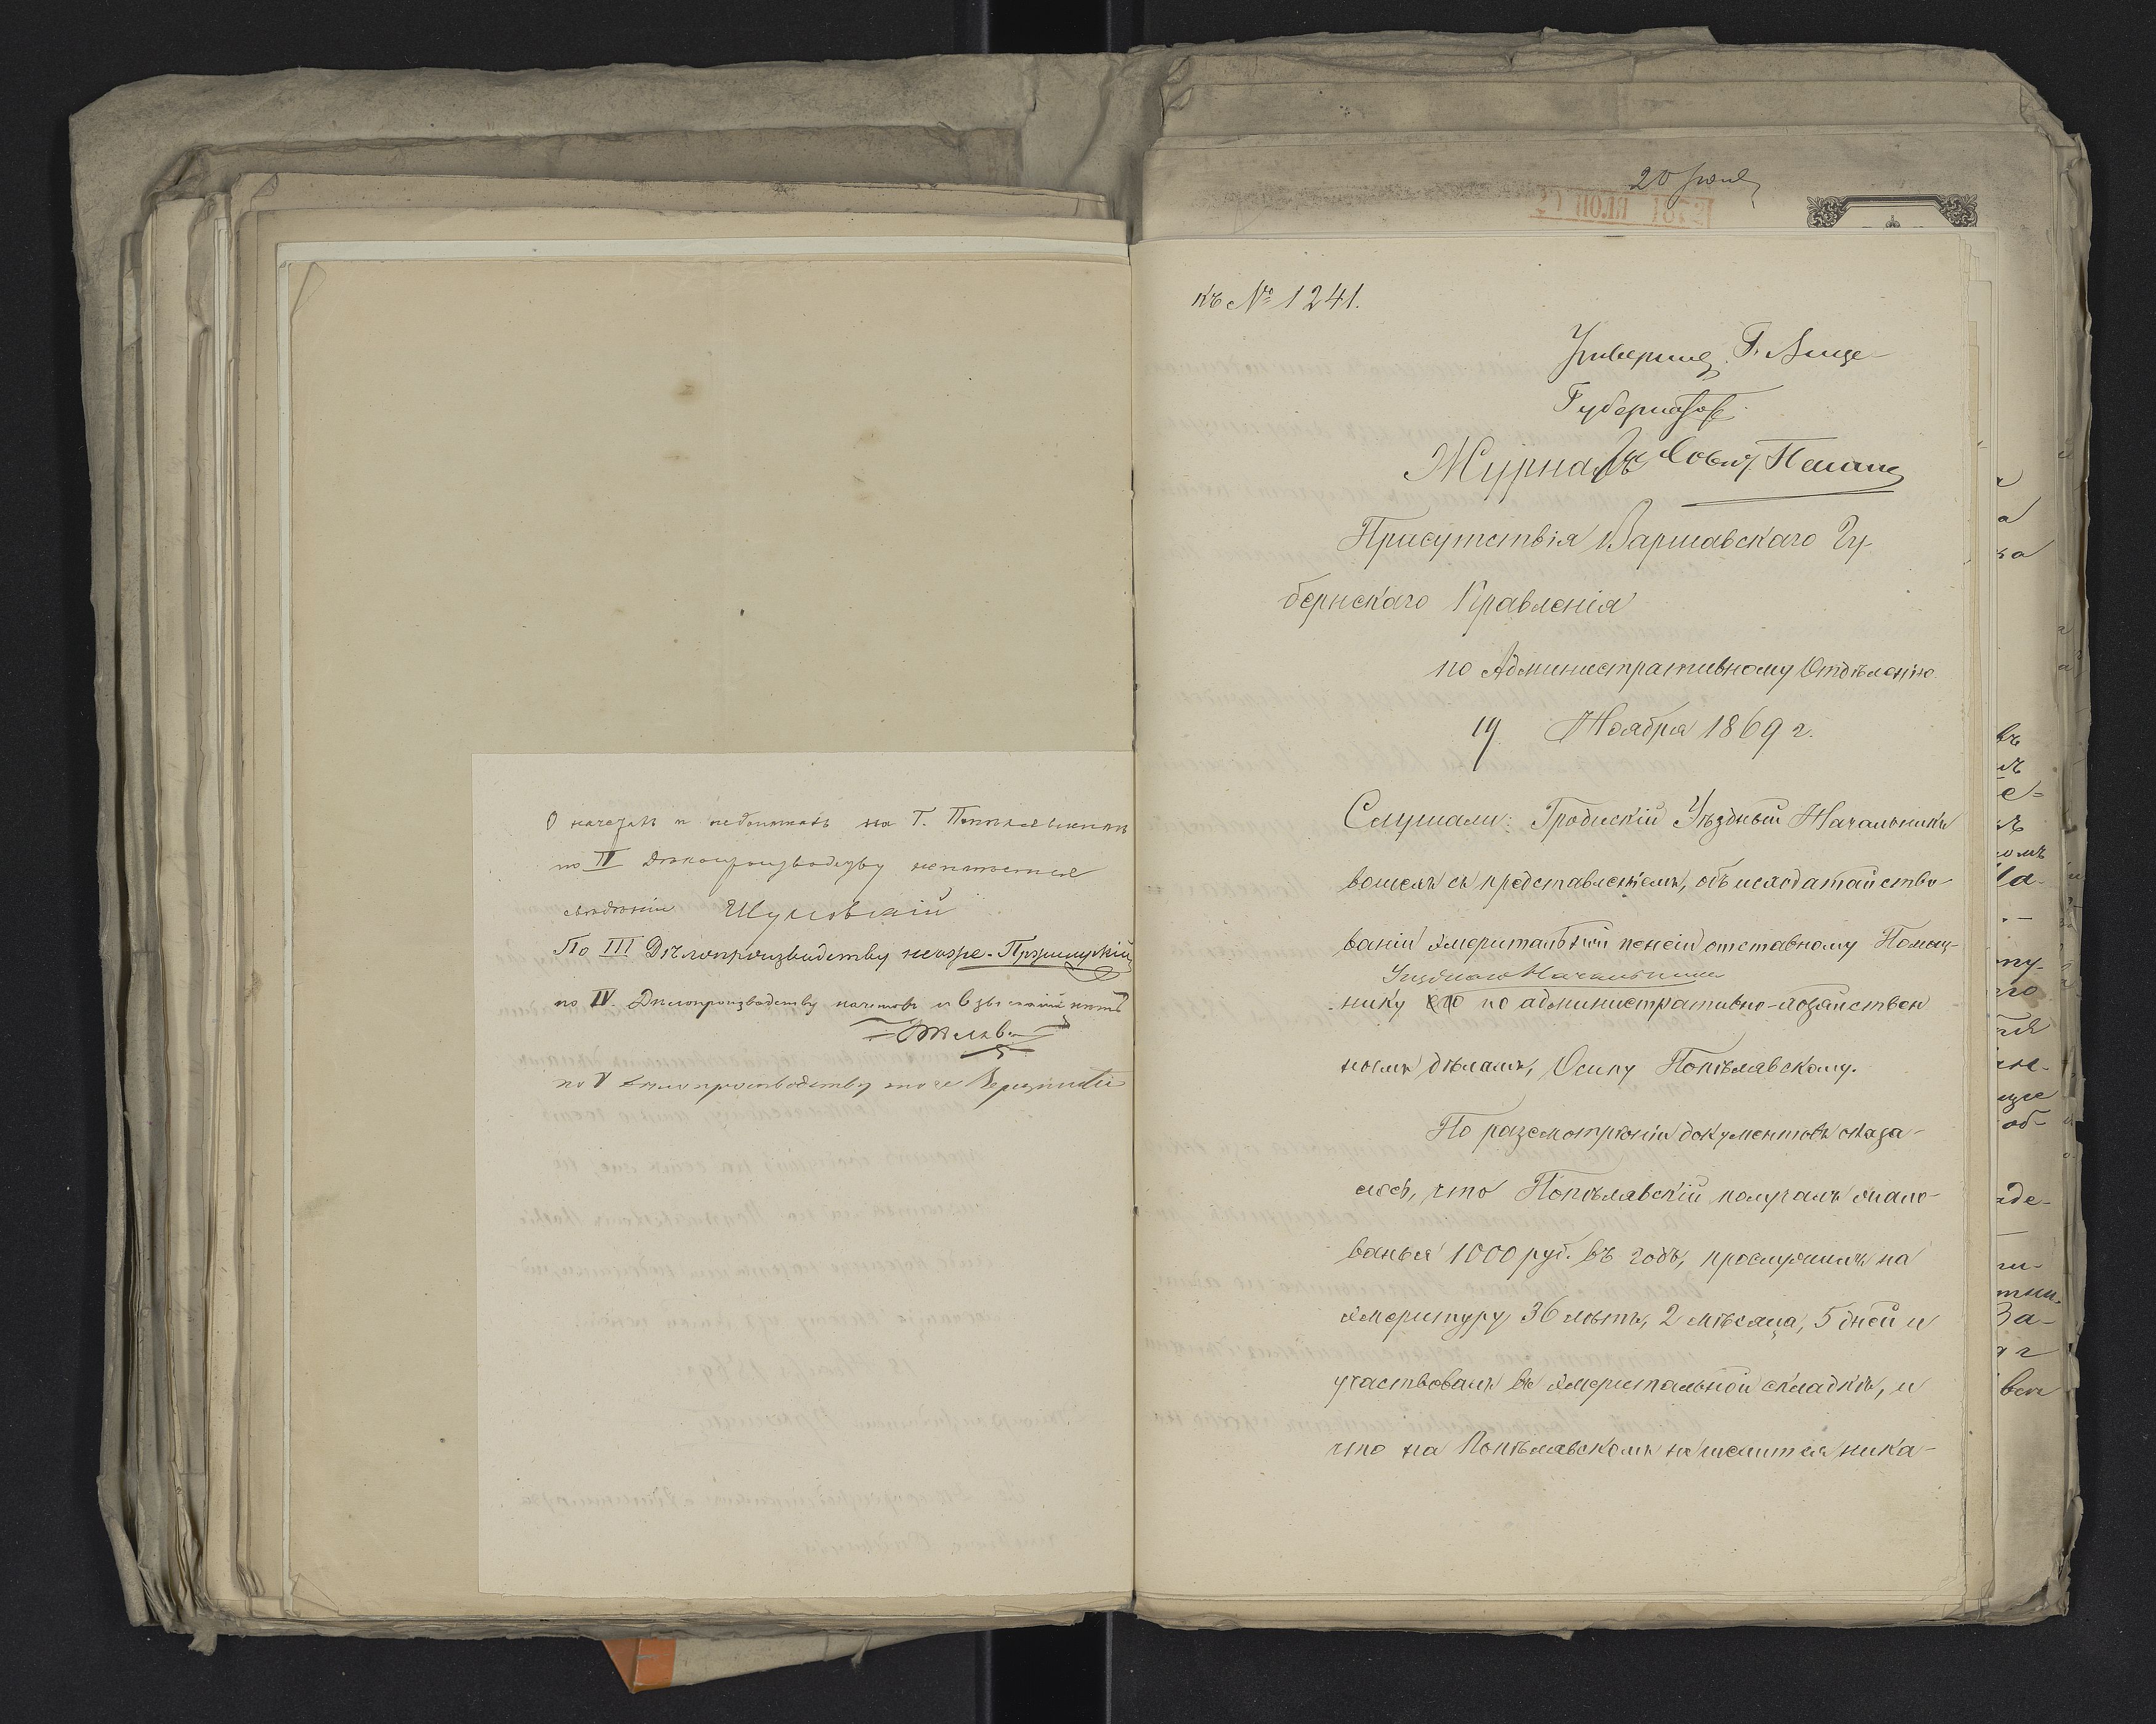 О начетѣ и недоимкахъ на Г.
по IV Дѣлопроизводству неимѣется
свѣдѣнія Шумовскій
По III Дѣлопроизводству неозре.
по IV. Дѣлопроизводству начетовъ и взысканій нѣтъ
по V Дѣлопроизводству тоже
20
къ № 1241.
Утвержд. Г. Вице-
Губернатор
За Совѣт.
Журналъ
Присутствія Варшавскаго Гу-
бернскаго Правленія
по Административному Отдѣленію.
19 Ноября 1869 г.
Слушали: Гродискій Уѣздный Начальникъ
вошелъ съ представленіемъ, объ исходатайство-
ваніи эмеритальной пенсіи отставному Помощ-
Уѣзднаго Начальника
нику его по административно-хозяйствен
нымъ дѣламъ, Осипу Попѣлявскому.
По разсмотрѣніи документовъ оказа-
лось, что Попѣлявскій получалъ жало-
ванья 1000 руб. въ годъ, прослужилъ на
эмеритуру 36 лѣтъ, 2 мѣсяца, 5 дней и
участвовалъ въ эмеритальной складкѣ, и
что на Попѣлявскомъ не числится ника-